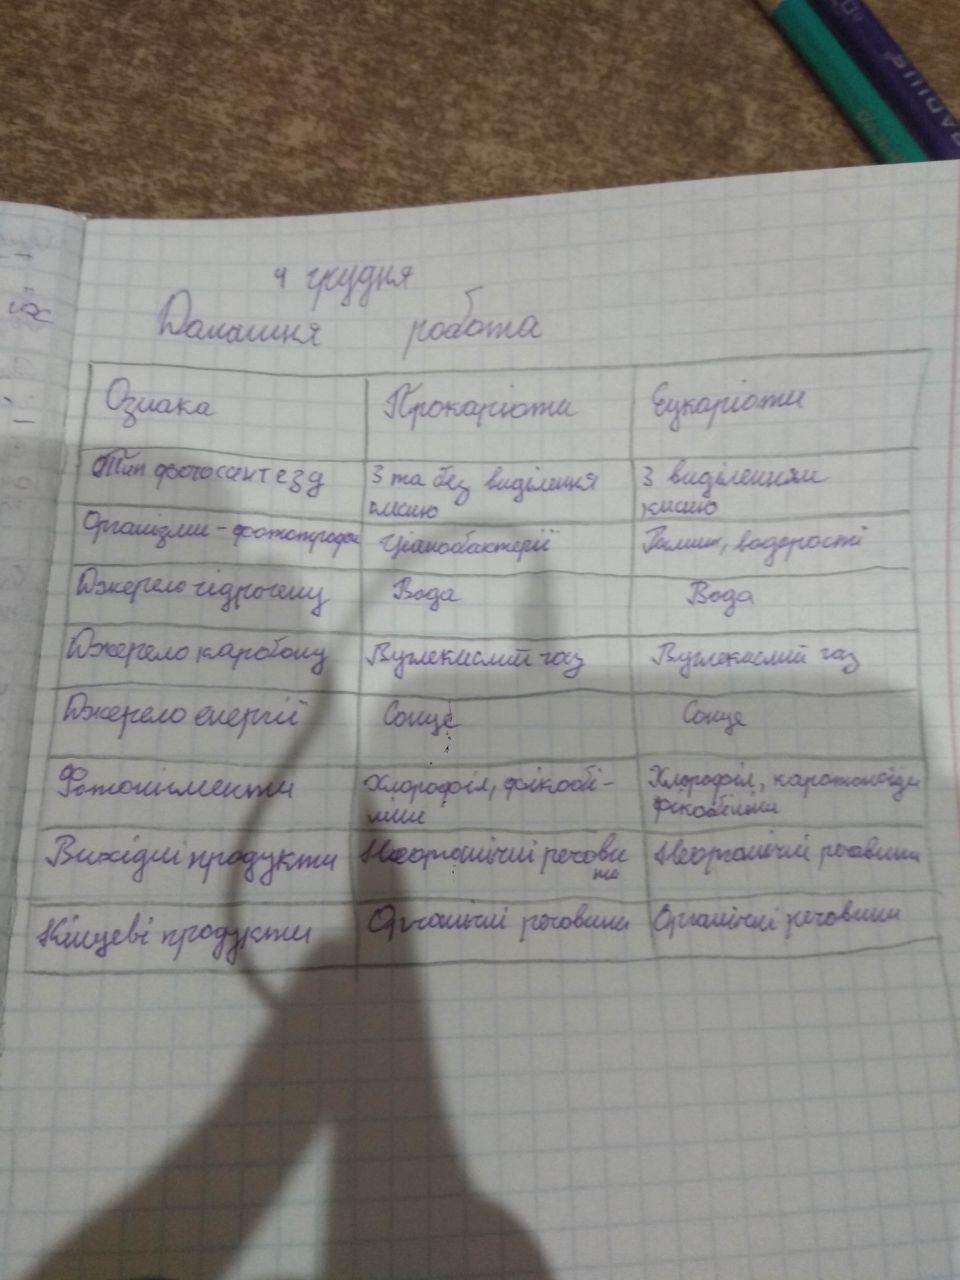 4 грудня
Домашня робота
Ознака Прокаріоти Еукаріоти
Тип фотосинтезу З та без виділення З виділенням
кисню кисню
Організми - фототрофи Ціанобактерії Рослини, водорості
Джерело гідрогену Вода Вода
Джерело карбону Вуглекислий газ Вуглекислий газ
Джерело енергії Сонце Сонце
Фотопігменти Хлорофіл, фікобі- Хлорофіл, каротоноїди
ліни фікобіліни
Вихідні продукти Неорганічні речови Неорганічні речовини
ни
Кінцеві продукти Органічні речовини Органічні речовини